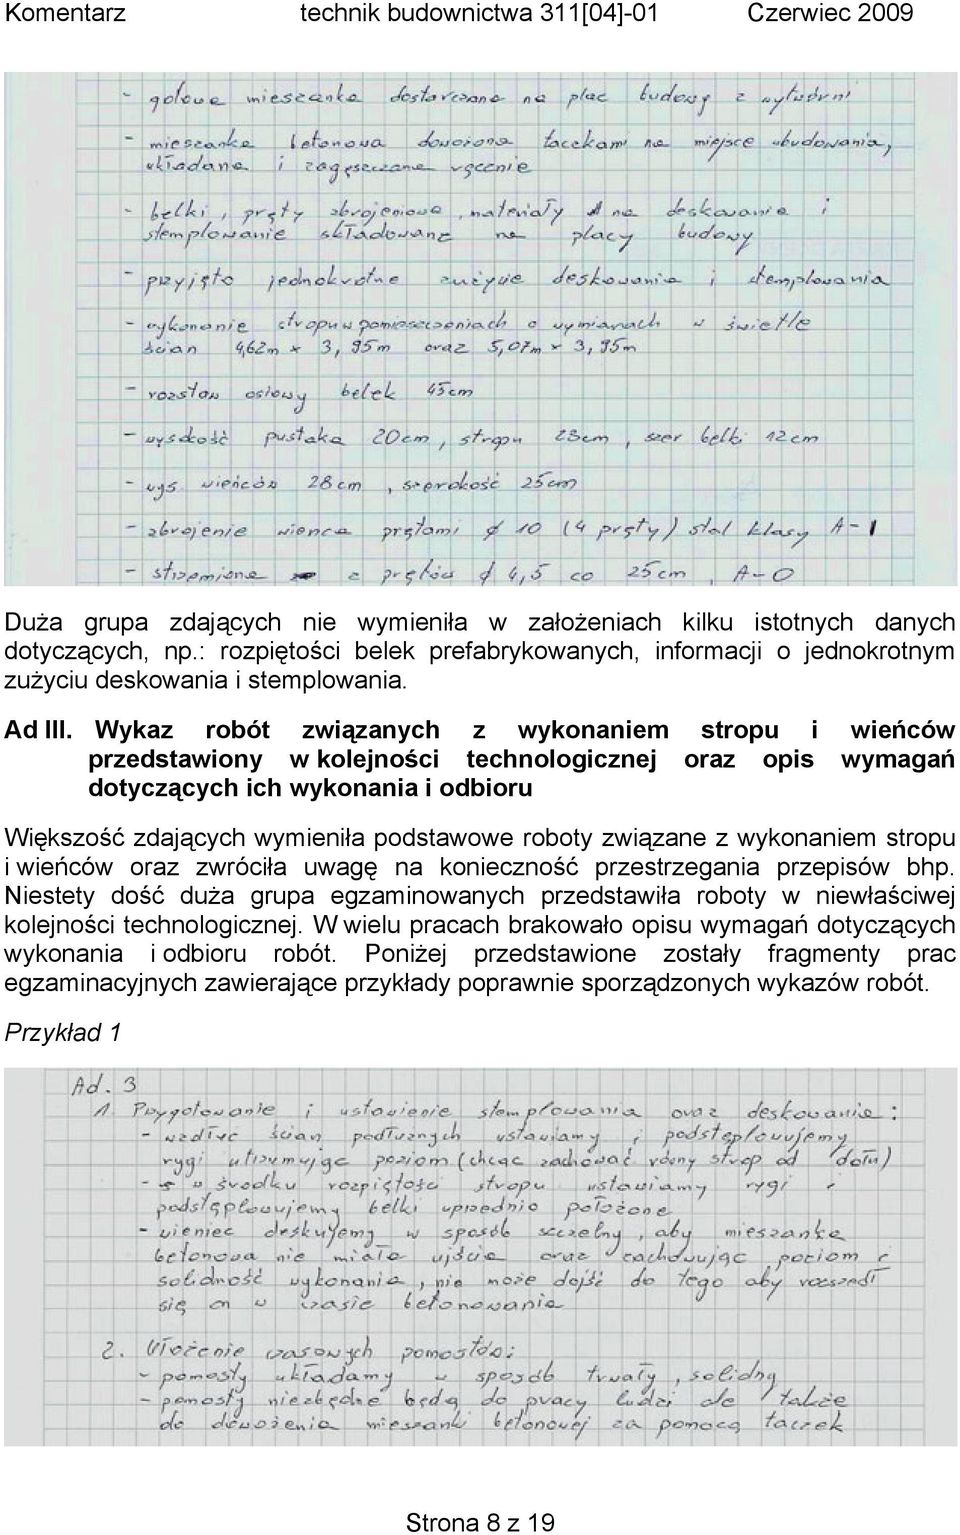 Komentarz technik budownictwa 311[04]-01 Czerwiec 2009
- gotowa mieszanka dostarczana na plac budowy z wytwórni
- mieszanka betonowa dowożona taczkami na miejsce wbudowania,
układana i zagęszczana ręcznie
- belki, pręty zbrojeniowe, materiały na deskowanie i
stemplowanie składowane na placy budowy
- przyjęto jednokrotne zużycie deskowania i stemplowania
- wykonanie stropu w pomieszczeniach o wymiarach w świetle
ścian 4,62m x 3,95m oraz 5,07m x 3,95m
- rozstaw osiowy belek 45cm
- wysokość pustaka 20cm, stropu 23cm, szer belki 12cm
- wys. wieńców 28cm, szerokość 25cm
- zbrojenie wieńca prętami ϕ 10 (4 pręty) stal klasy A-I
- strzemiona z prętów ϕ 4,5 co 25cm, A-O
Duża grupa zdających nie wymieniła w założeniach kilku istotnych danych
dotyczących, np.: rozpiętości belek prefabrykowanych, informacji o jednokrotnym
zużyciu deskowania i stemplowania.
Ad III. Wykaz robót związanych z wykonaniem stropu i wieńców
przedstawiony w kolejności technologicznej oraz opis wymagań
dotyczących ich wykonania i odbioru
Większość zdających wymieniła podstawowe roboty związane z wykonaniem stropu
i wieńców oraz zwróciła uwagę na konieczność przestrzegania przepisów bhp.
Niestety dość duża grupa egzaminowanych przedstawiła roboty w niewłaściwej
kolejności technologicznej. W wielu pracach brakowało opisu wymagań dotyczących
wykonania i odbioru robót. Poniżej przedstawione zostały fragmenty prac
egzaminacyjnych zawierające przykłady poprawnie sporządzonych wykazów robót.
Przykład 1
Ad. 3
1. Przygotowanie i ustawienie stemplowania oraz deskowania:
- wzdłuż ścian podłużnych ustawiamy i podstęplowujemy
rygi utrzymując poziom (chcąc zachować równy strop od dołu)
- w środku rozpiętości stropu ustawiamy rygi i
podstęplowujemy belki uprzednio położone
- wieniec deskujemy w sposób szczelny, aby mieszanka
betonowa nie miała ujścia oraz zachowując poziom i
solidność wykonania, nie może dojść do tego aby rozszedł
się on w czasie betonowania
2. Ułożenie czasowych pomostów:
- pomosty układamy w sposób trwały, solidny
- pomosty niezbędne będą do pracy ludzi ale także
do dowożenia mieszanki betonowej za pomocą taczek
Strona 8 z 19